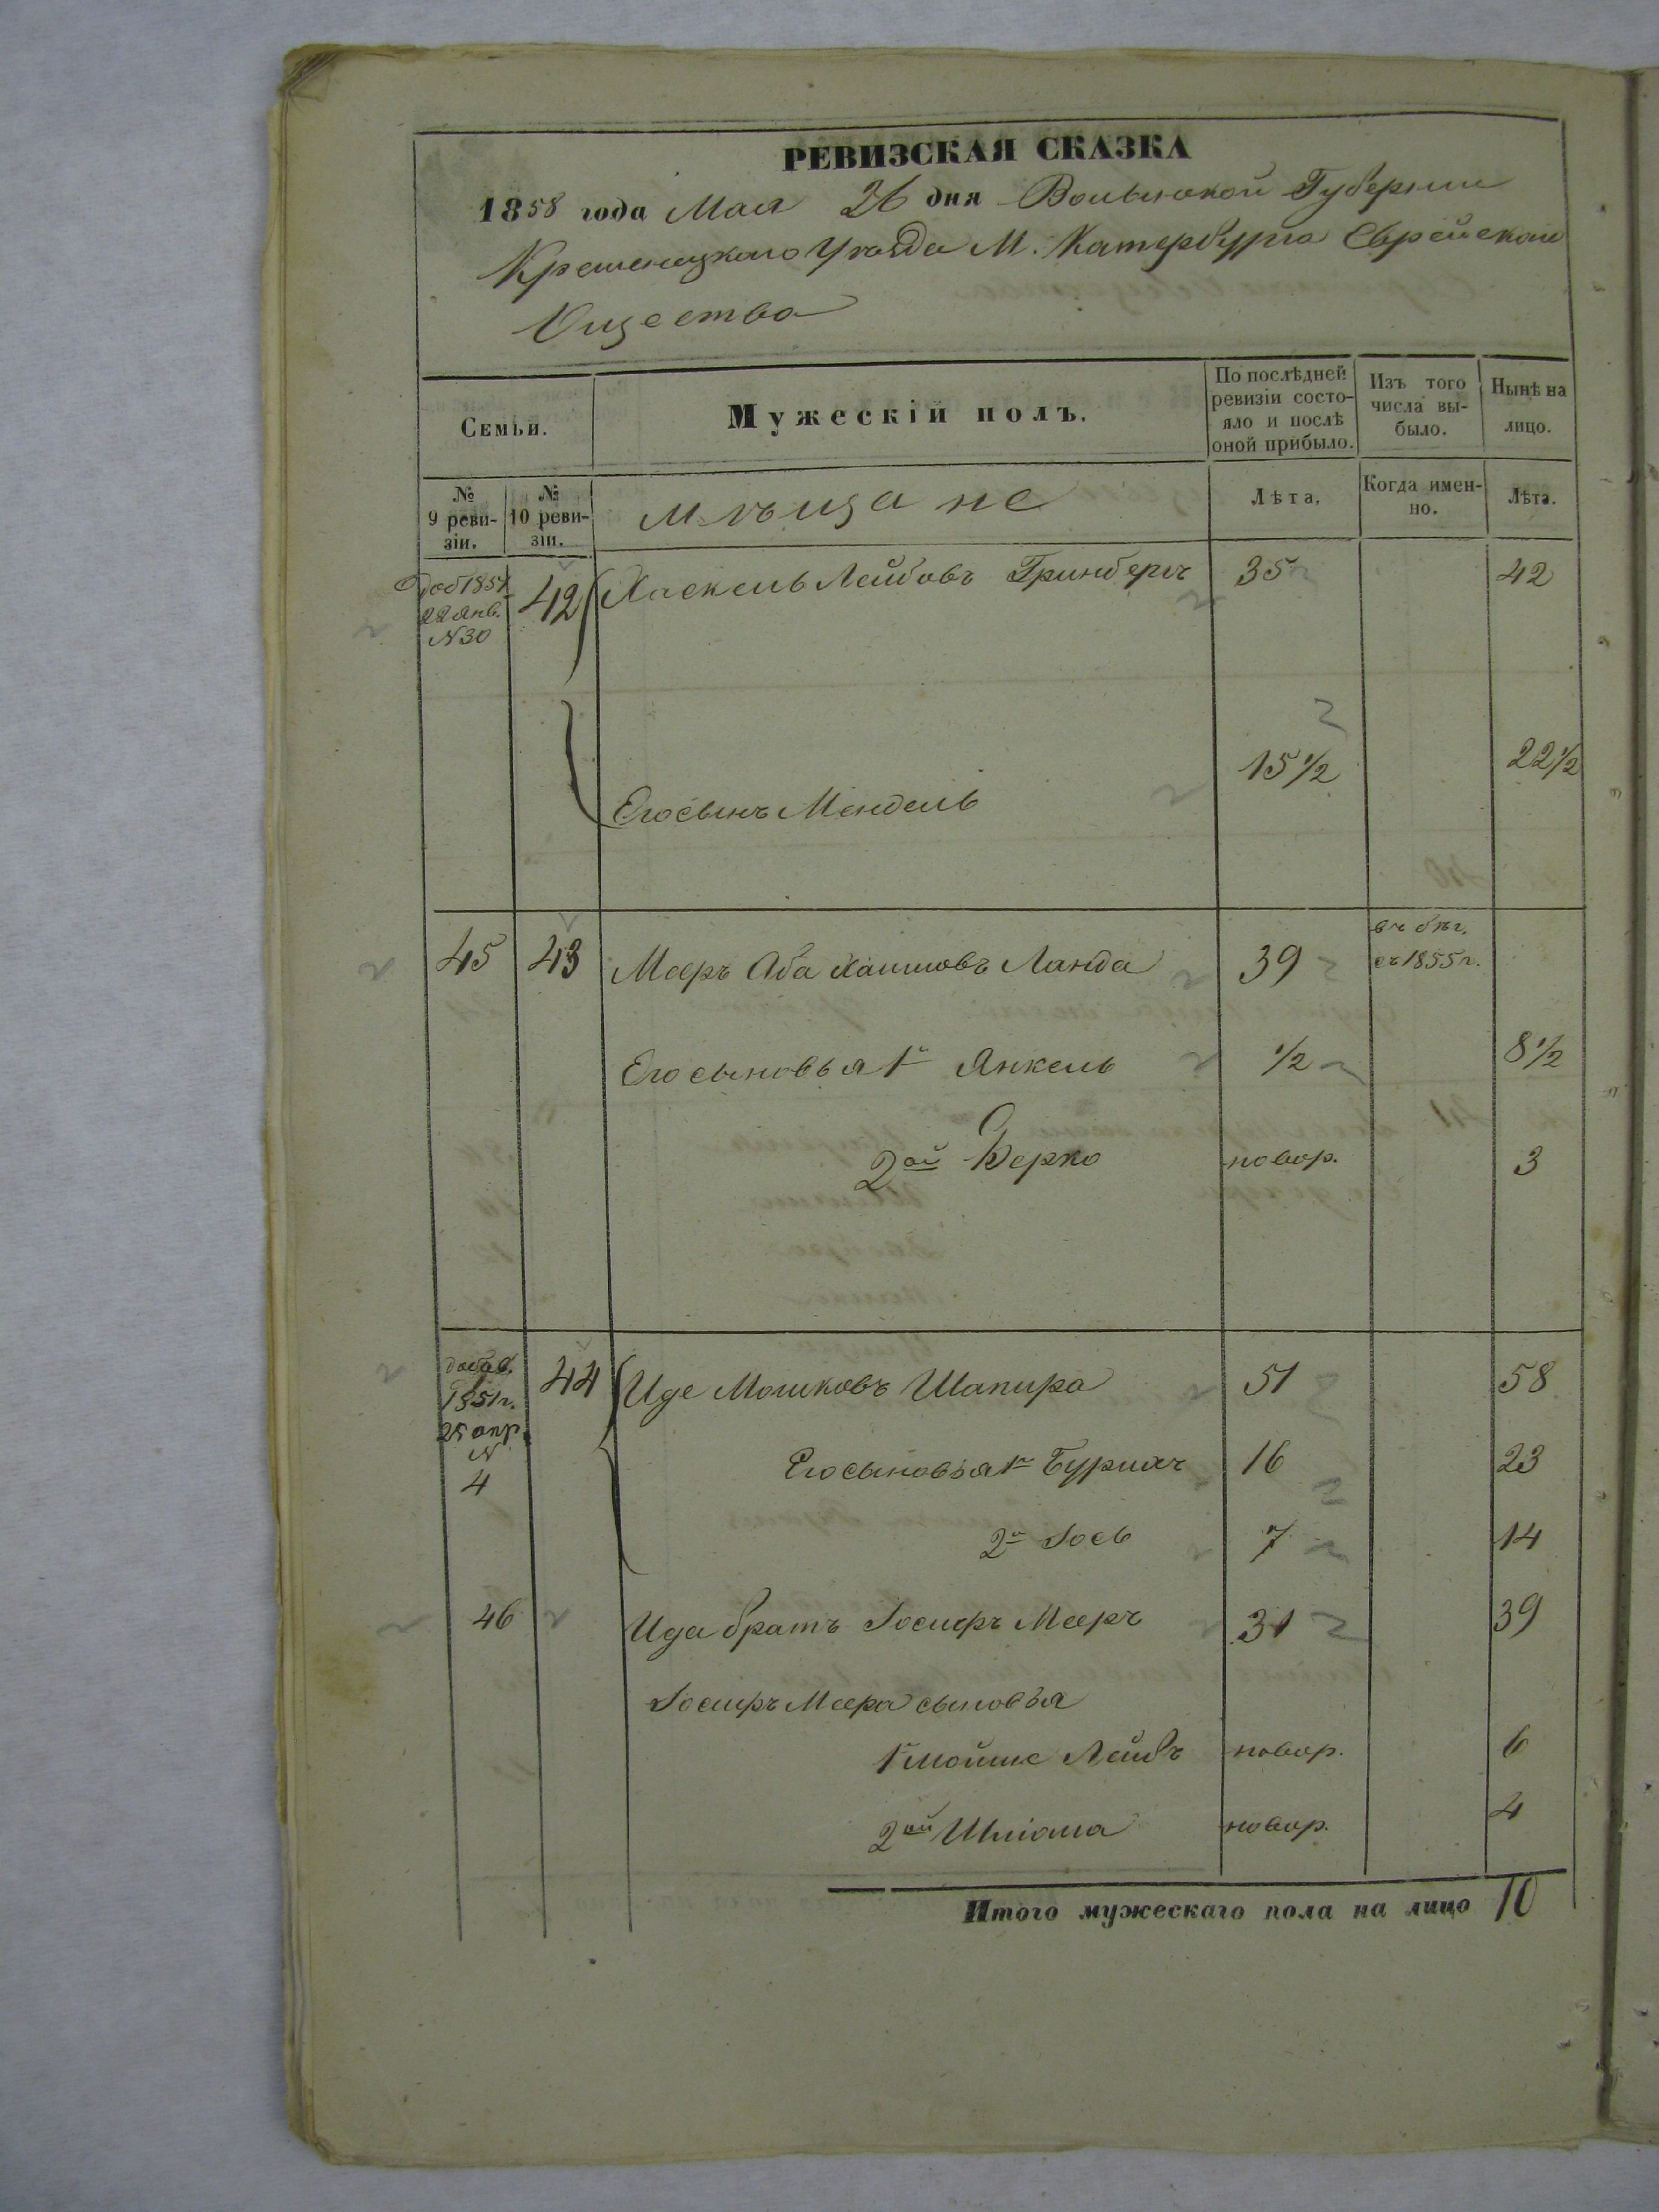 РЕВИЗСКАЯ СКАЗКА
1858 года Мая 26 дня Волынской Губернии
Кременецкаго Уѣзда М. Катербурга Еврейскаго
Опщества
Семьи.
Мужескій полъ.
По послѣдней ревизіи состо-
яло и послѣ
оной прибыло.
Изъ того
числа вы-
было.
Нынѣ на
лицо.
№
9 реви-
зіи.
№
10 реви-
зіи.
мѣщане
Лѣта.
Когда имен-
но.
Лѣта.
Доб 1851
22 янв.
N 30
42 Хаскель Лейбовъ Гринбергъ 35 42
Его сынъ Мендель 15½ 22½
45 43 Мееръ Аба Хаимовъ Ланда 39 въ бѣг.
съ 1855 г.
Его сыновья 1й Янкель ½ 8½
2ой Берко новор. 3
добав.
1851 г.
25 апр.
N
4
44 Иде Мошковъ Шапира 51 58
Его сыновья 1й 16 23
2й Іось 7 14
46 Ида братъ Іосифъ Мееръ 31 39
Іосифъ Меера сыновья
1й Мойше Лейбъ новор. 6
2ой Шліома новор. 4
Итого мужескаго пола на лицо 10